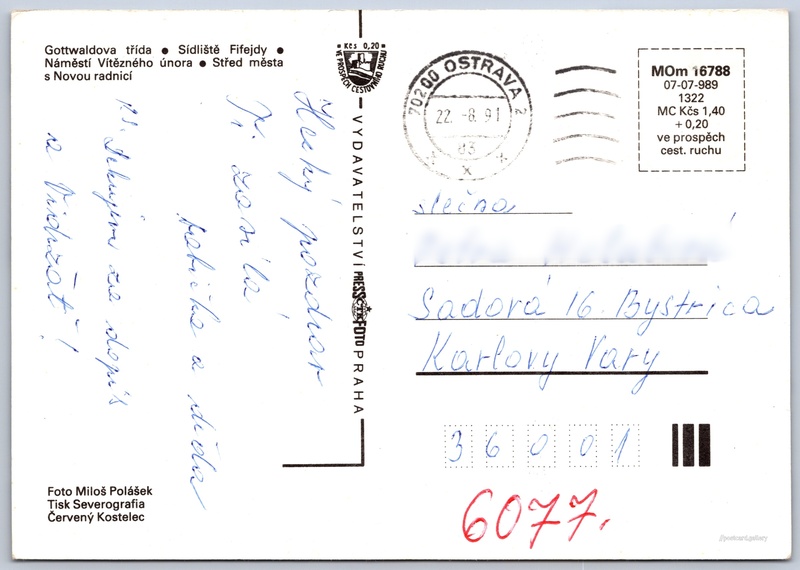 Gottwaldova třída ● Sídliště Fifejdy ●
Náměstí Vítězného února ● Střed města
s Novou radnicí
Kčs 0,20
VE PROSPĚCH CESTOVNÍHO RUCHU
Hezký pozdrav
Ti zasílá
babička a děda
P.S. Děkujeme za dopis
a Vydržať!
VYDAVATELSTVÍ PRESSFOTO PRAHA
ČTK
70200 OSTRAVA 2
22.-8.91
d3
MOm 16788
07-07-989
1322
MC Kčs 1,40
+ 0,20
ve prospěch
cest. ruchu
slečna
Sadová 16. Bystrica
Karlovy Vary
36001
6077.
Foto Miloš Polášek
Tisk Severografia
Červený Kostelec